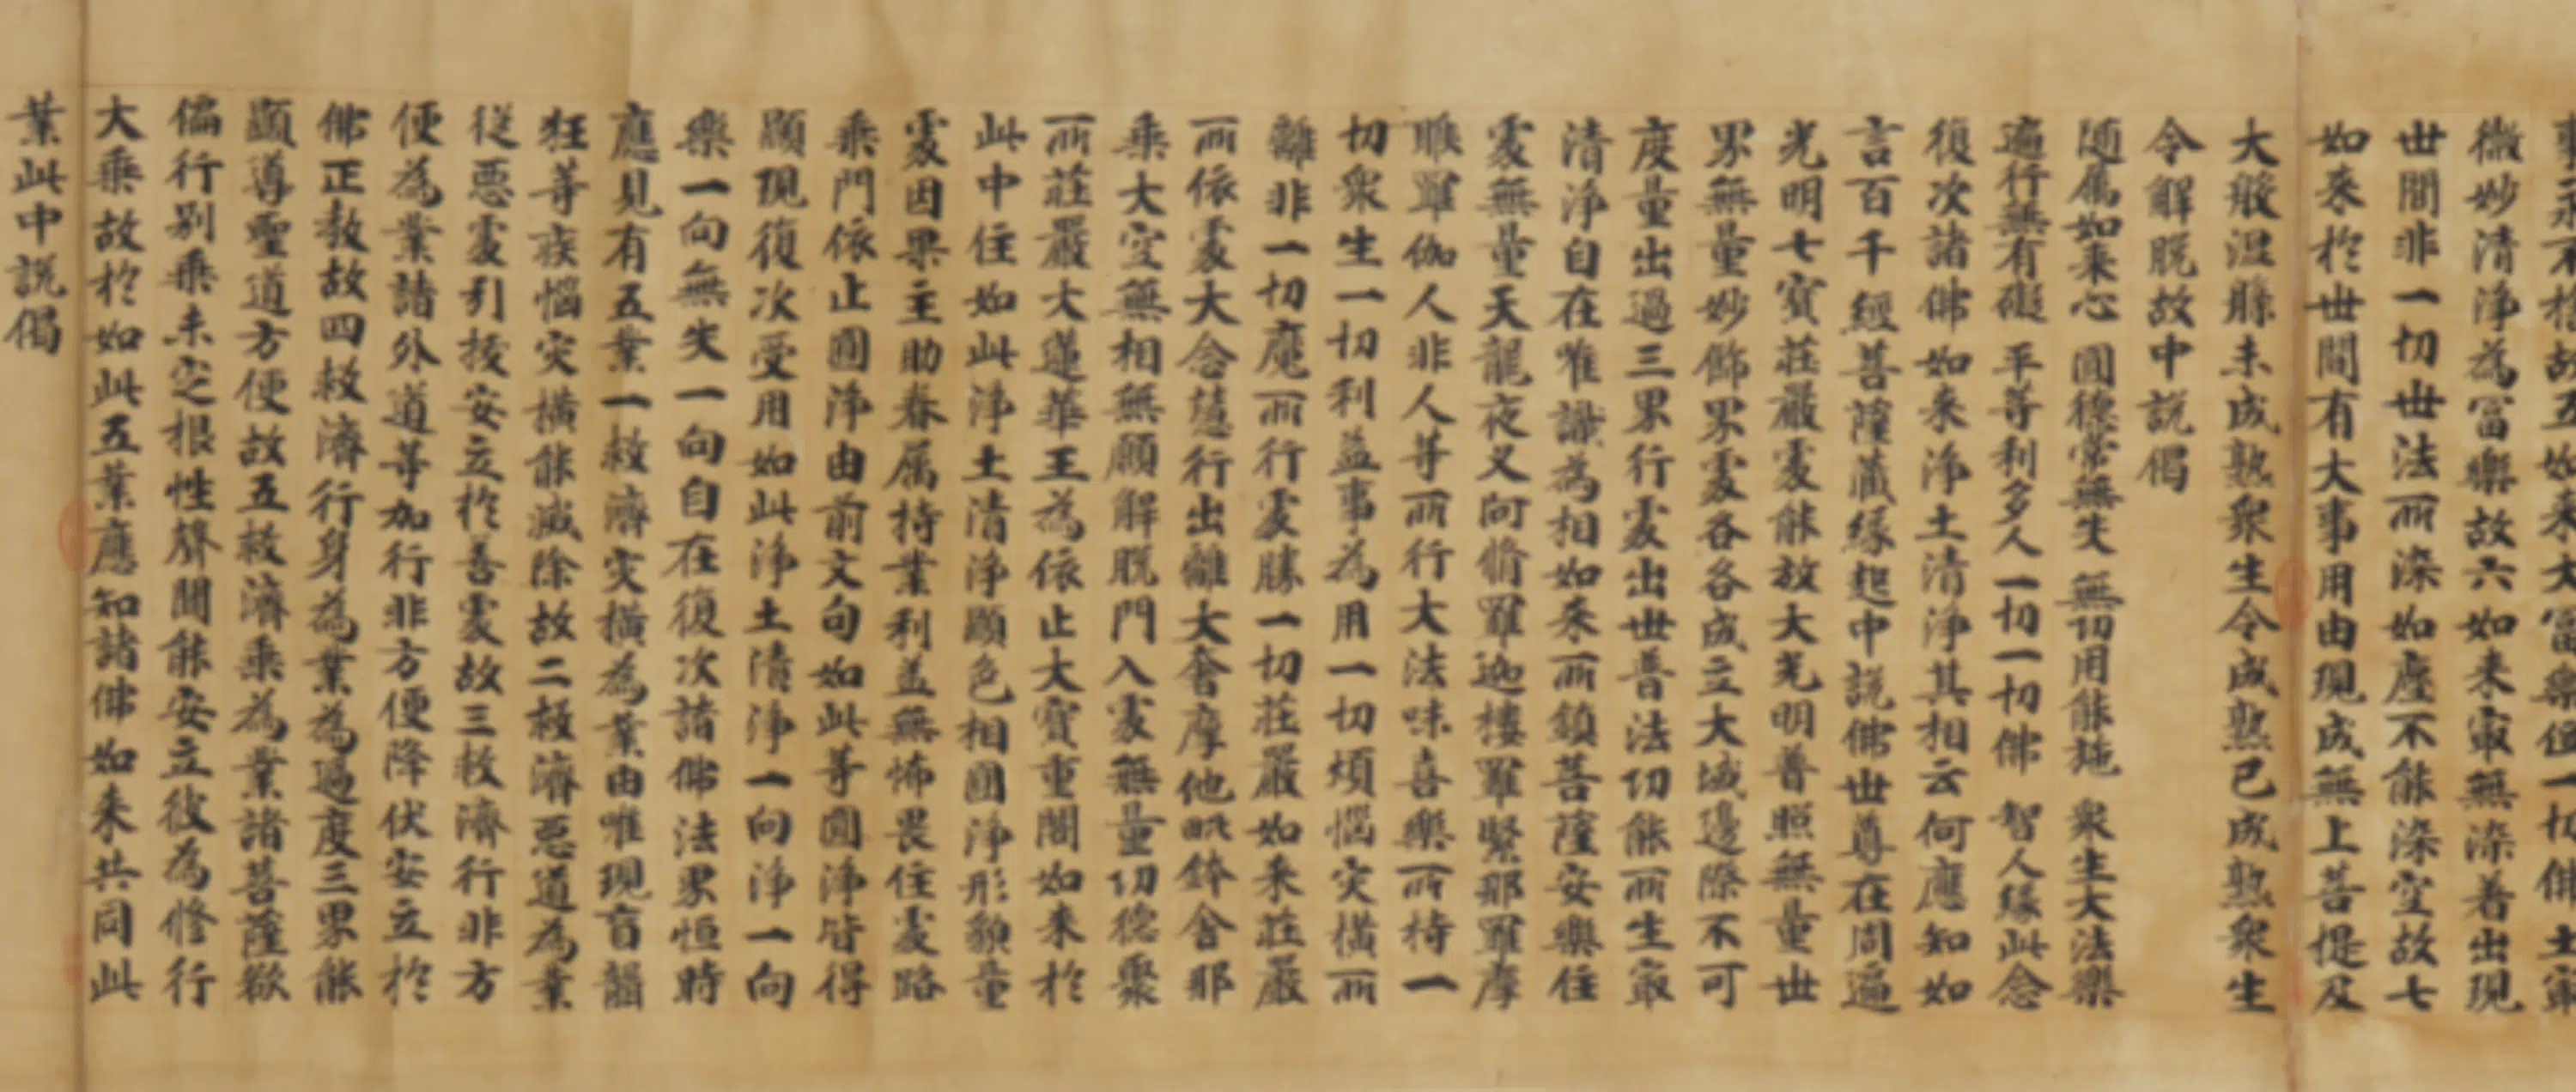 故五如来大富樂位一切佛土冣
微妙清淨為富樂故六如来冣無染著出現
世間非一切世法所染如塵不能染空故七
如来於世間有大事用由現成無上菩提及
大般涅槃未成熟衆生令成熟已成熟衆生
令解脱故中説偈
随属如来心 圓德常無失 無功用能施 衆生大法樂
遍行無有礙 平等利多人 一切一切佛 智人緣此念
復次諸佛如来淨土清淨其相云何應知如
言百千經菩薩藏緣起中説佛世尊在周遍
光明七寶莊嚴處能放大光明普照無量世
界無量妙飾界處各各成立大城邊際不可
度量出過三界行處出世普法功能所生冣
清淨自在唯識為相如来所鎮菩薩安樂住
處無量天龍夜叉阿脩羅迦樓羅緊那羅摩
睺羅伽人非人等所行大法味喜樂所持一
切衆生一切利益事為用一切煩惱灾横所
離非一切魔所行處勝一切莊嚴如来莊嚴
所依處大念慧行出離大奢摩他毗鉢舍那
乘大空無相無願解脱門入處無量功德聚
所莊嚴大蓮華王為依止大寶重閣如来於
此中住如此淨土清淨顯色相圓淨形貌量
處因果主助眷属持業利益無怖畏住處路
乘門依止圓淨由前文句如此等圓淨皆得
顯現復次受用如此淨土清淨一向淨一向
樂一向無失一向自在復次諸佛法界恒時
應見有五業一救濟灾横為業由唯現盲聾
狂等疾惱灾横能滅除故二救濟惡道為業
従惡處引拔安立於善處故三救濟行非方
便為業諸外道等加行非方便降伏安立於
佛正教故四救濟行身為業為過度三界能
顯導聖道方便故五救濟乘為業諸菩薩欲
偏行别乘未定根性聲聞能安立彼為修行
大乘故於如此五業應知諸佛如来共同此
業此中説偈